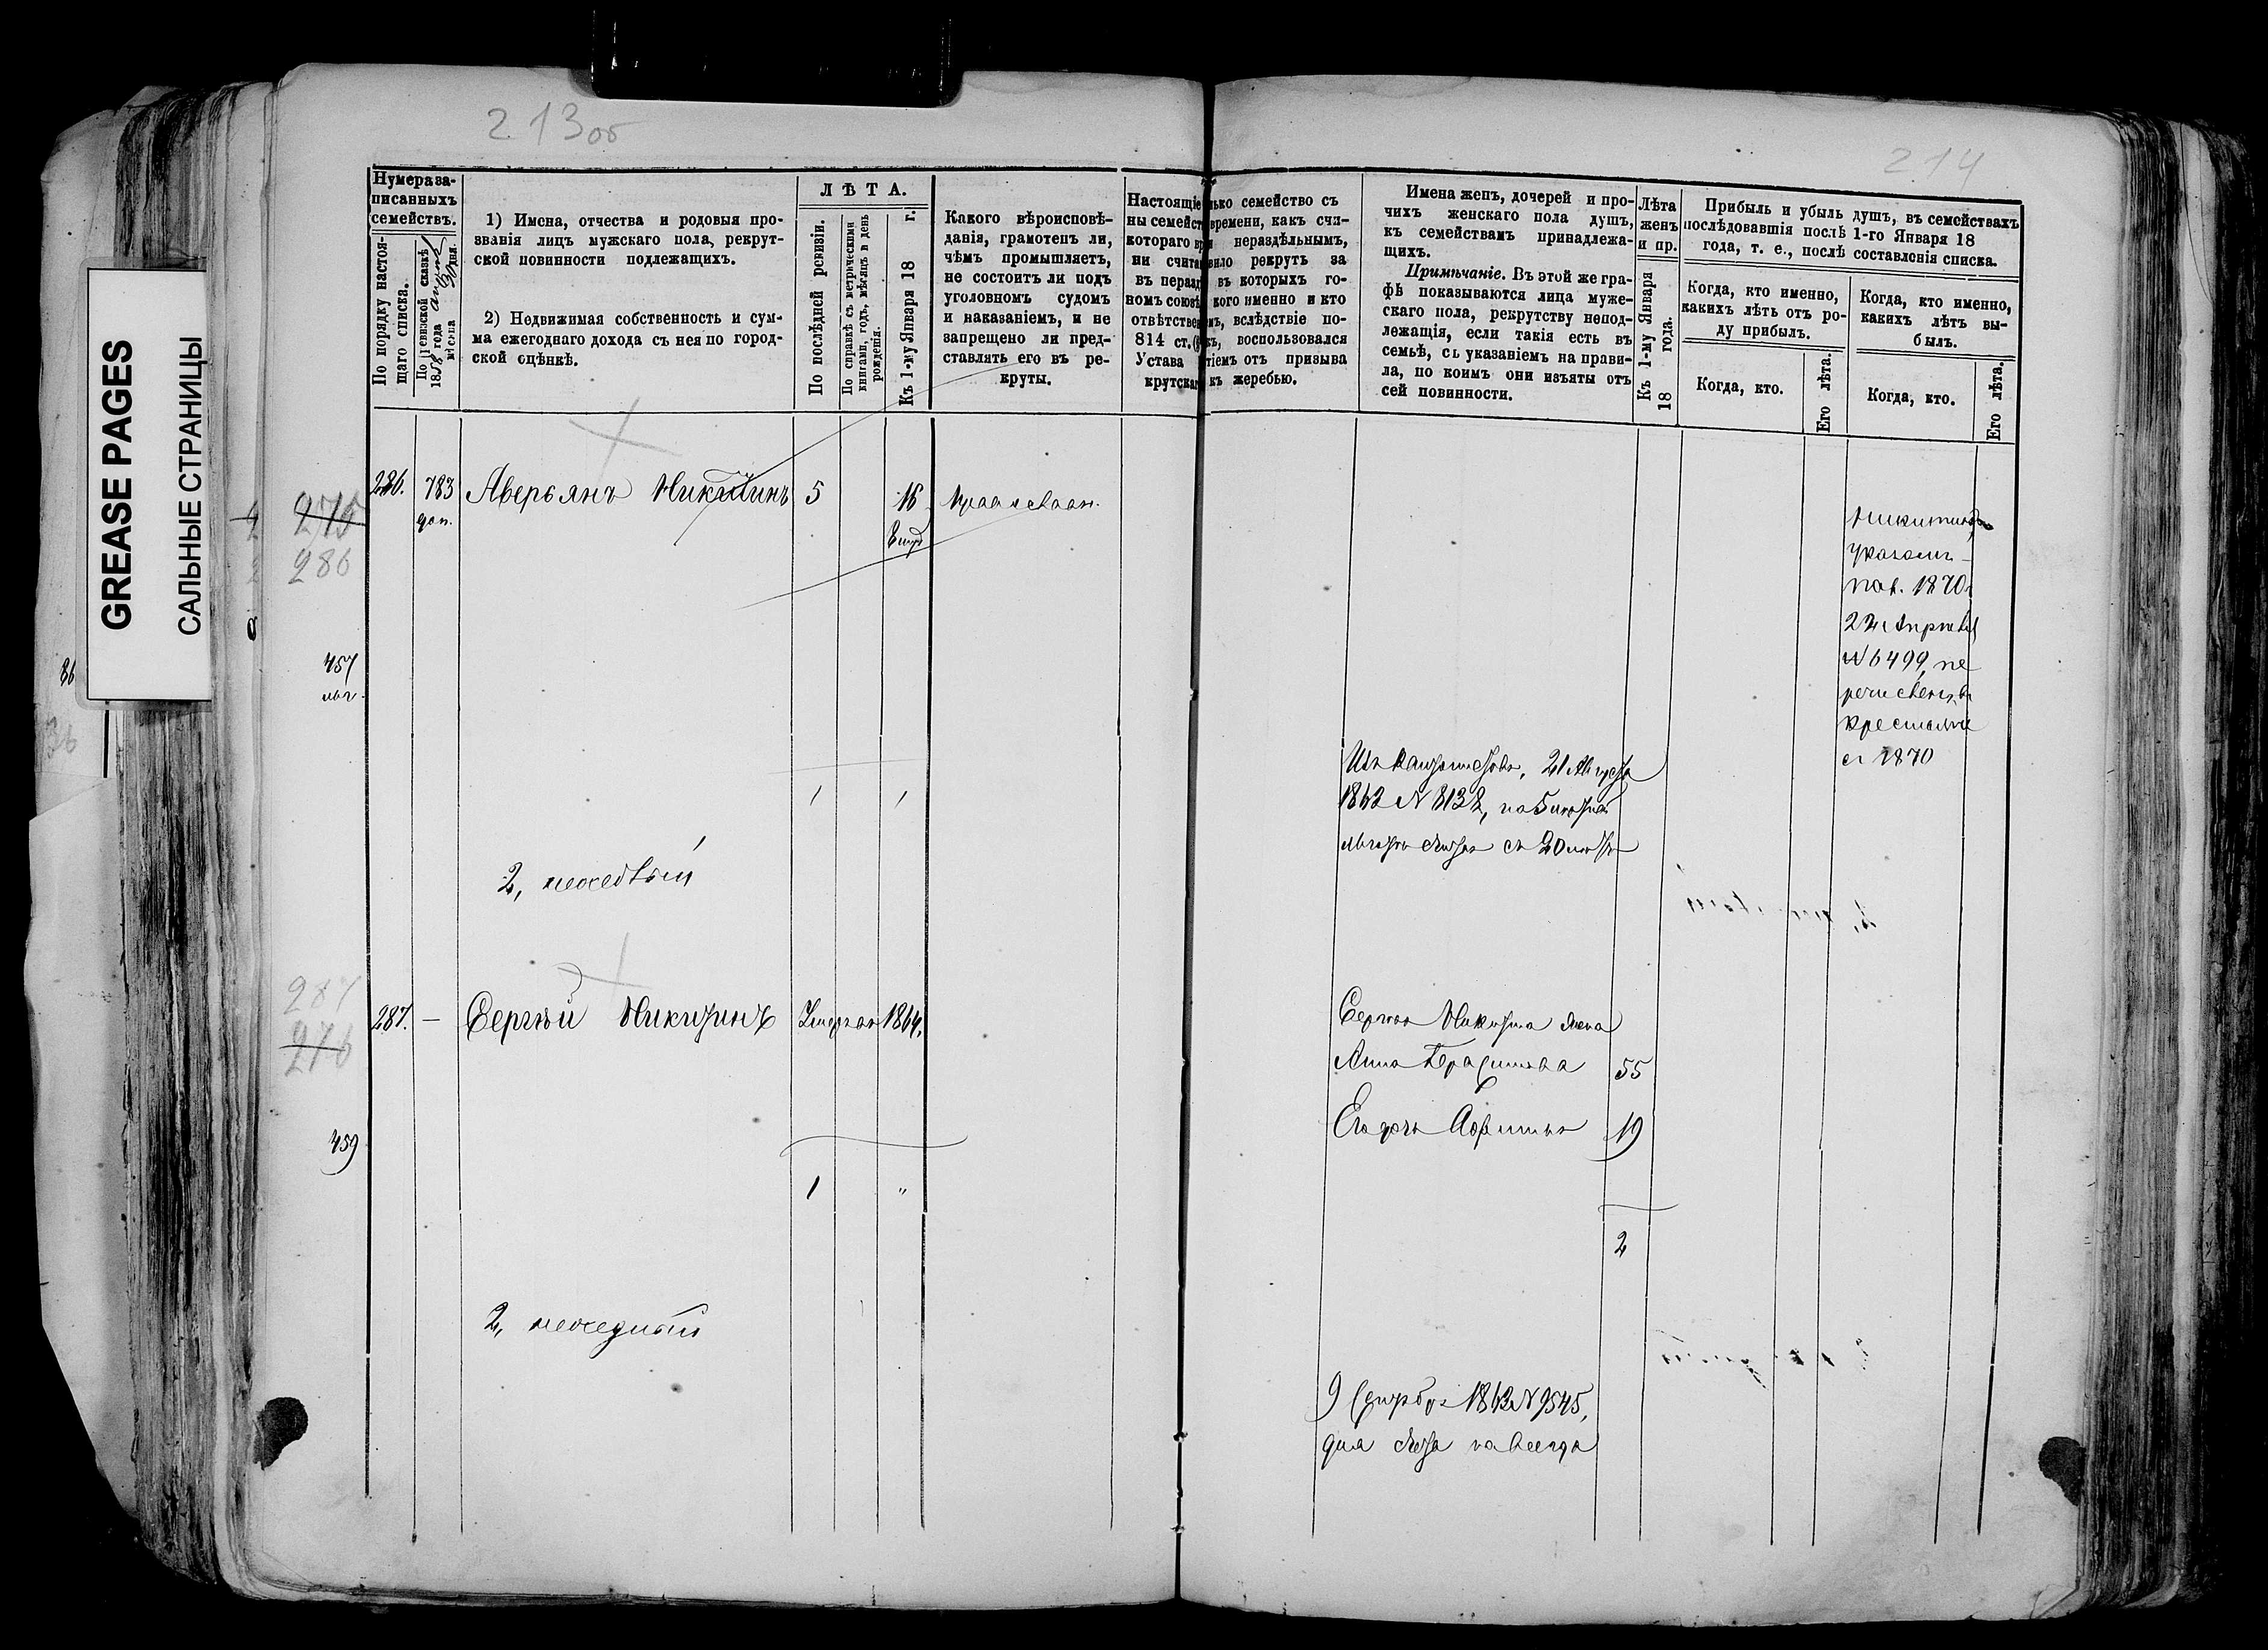 213 об
214
GREASE PAGES
САЛЬНЫЕ СТРАНИЦЫ
Нумера за-
писанныхъ
семействъ.
По порядку настоя-
щаго списка.
По ревизской сказкѣ
1858 года
мѣсяца 30 дня.
1) Имена, отчества и родовыя про-
званія лицъ мужскаго пола, рекрут-
ской повинности подлежащихъ.
2) Недвижимая собственность и сум-
ма ежегоднаго дохода съ нея по город-
ской оцѣнкѣ.
ЛѢТА.
По послѣдней ревизіи.
По справкѣ съ метрическими
книгами, годъ, мѣсяцъ и день
рожденія.
Къ 1-му Января 18 г.
Какого вѣроисповѣ-
данія, грамотенъ ли,
чѣмъ промышляетъ,
не состоитъ ли подъ
уголовномъ судомъ
и наказаніемъ, и не
запрещено ли пред-
ставлять его въ ре-
круты.
Настоящіе
ны семейст
котораго вр
ни счита
въ нераз
номъ союз
отвѣтствен
814 ст.
Устава
крутска
лько семейство съ
времени, какъ счи-
нераздѣльнымъ,
вило рекрутъ за
въ которыхъ го-
кого именно и кто
мъ, вслѣдствіе по-
къ, воспользовался
тіемъ отъ призыва
къ жеребью.
Имена женъ, дочерей и про-
чихъ женскаго пола душъ,
къ семействамъ принадлежа-
щихъ.
Примѣчаніе. Въ этой же гра-
фѣ показываются лица муже-
скаго пола, рекрутству непод-
лежащія, если такія есть въ
семьѣ, съ указаніемъ на прави-
ла, по коимъ они изъяты отъ
сей повинности.
Лѣта
женъ
и пр.
Къ 1-му Января
18 года.
Прибыль и убыль душъ, въ семействахъ
послѣдовавшія послѣ 1-го Января 18
года, т. е., послѣ составленія списка.
Когда, кто именно,
какихъ лѣтъ отъ ро-
ду прибылъ.
Когда, кто.
Его лѣта.
Когда, кто именно,
какихъ лѣтъ вы-
былъ.
Когда, кто.
Его лѣта.
275
286
286. 783 Аверьянъ Никитинъ 5 16
доп.
457
1 1
Никитинъ
указомъ
пал. 1870
22 Апрѣля
№ 6499, пе
речисленъ въ
крестьяне
съ 1870
21 Августа
1862 № 8132, на 5
2, неоседлый
287
276
287. — Сергѣй Никитинъ Умеръ 1864.
Сергѣя Никитина жена
Анна Герасимова 55
Его дочь 19
459
1 "
2
2, неоседлый
9 Сентября 1862 № 9545,
навсегда